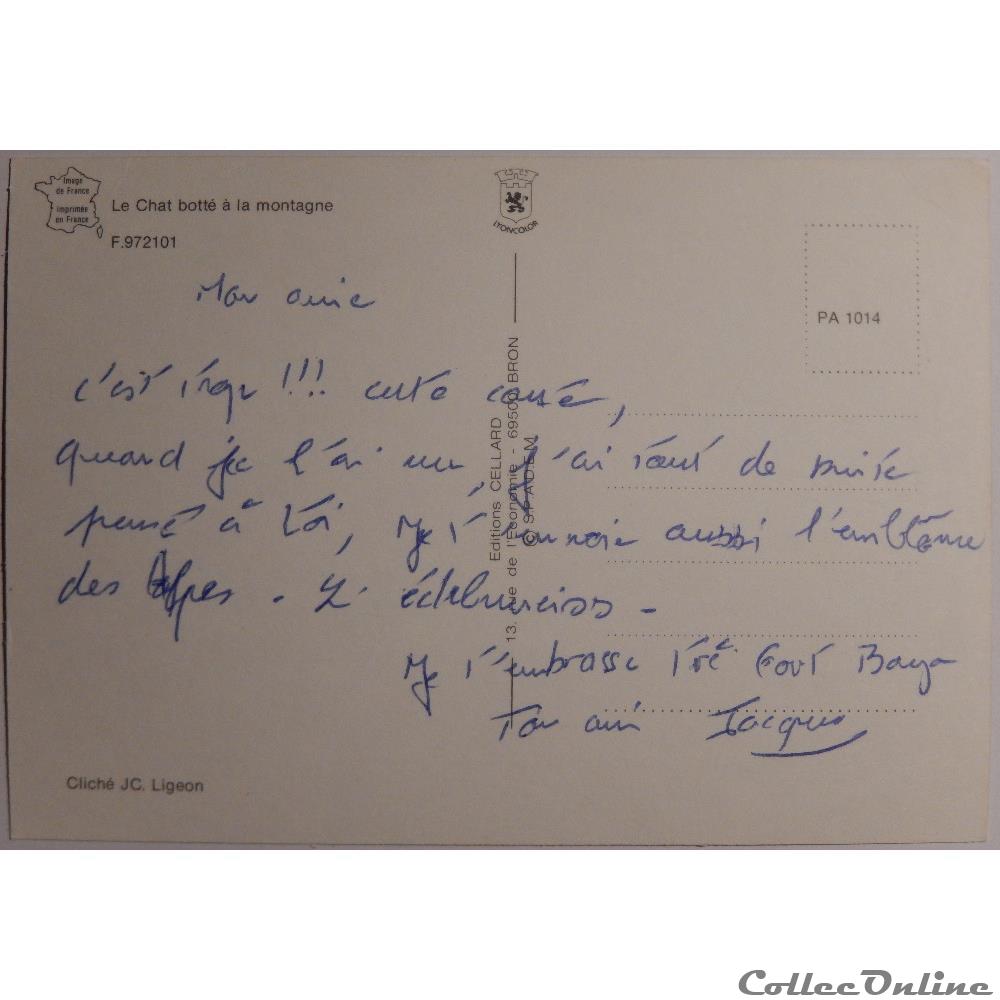 Image
de France
imprimée
en France
Le Chat botté à la montagne
F.972101
LYONCOLOR
PA 1014
Mon amie
c'est !!! cette carte,
quand je l'ai vu, j'ai tout de suite
pensé à toi, Je t'envoie aussi l'emblème
des Alpes - L'édelweiss -
Je t'embrasse trè fort
Ton ami Jacques
Editions CELLARD
13, rue de l'Economie - 69500 BRON
(C) S.P.A.D.E.M.
Cliché JC. Ligeon
CollecOnline